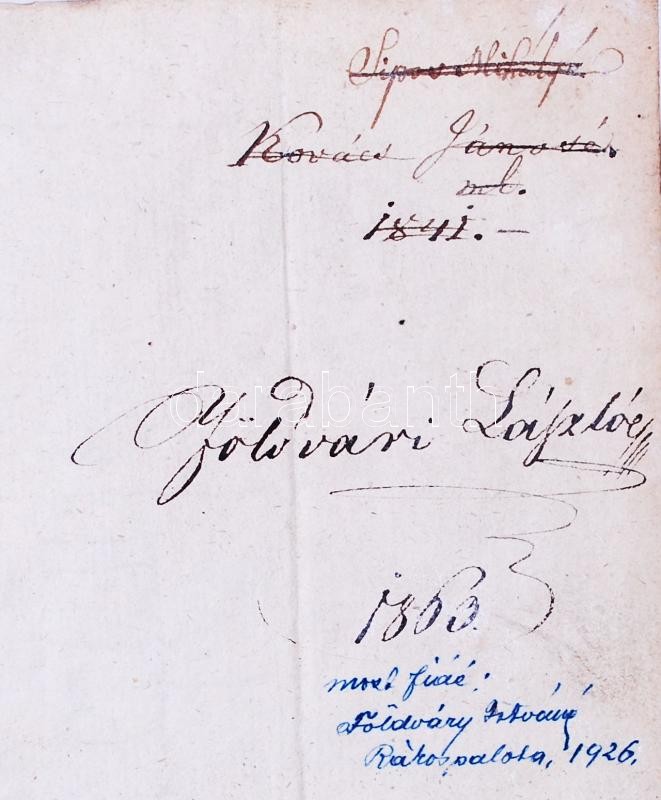 Sipos Mihályé
Kovács Jánosé.
mk.
1841. –
darabanth
Földvári Lászlóé
1863.
most fiáé:
Földváry Istváné
Rákospalota, 1926.